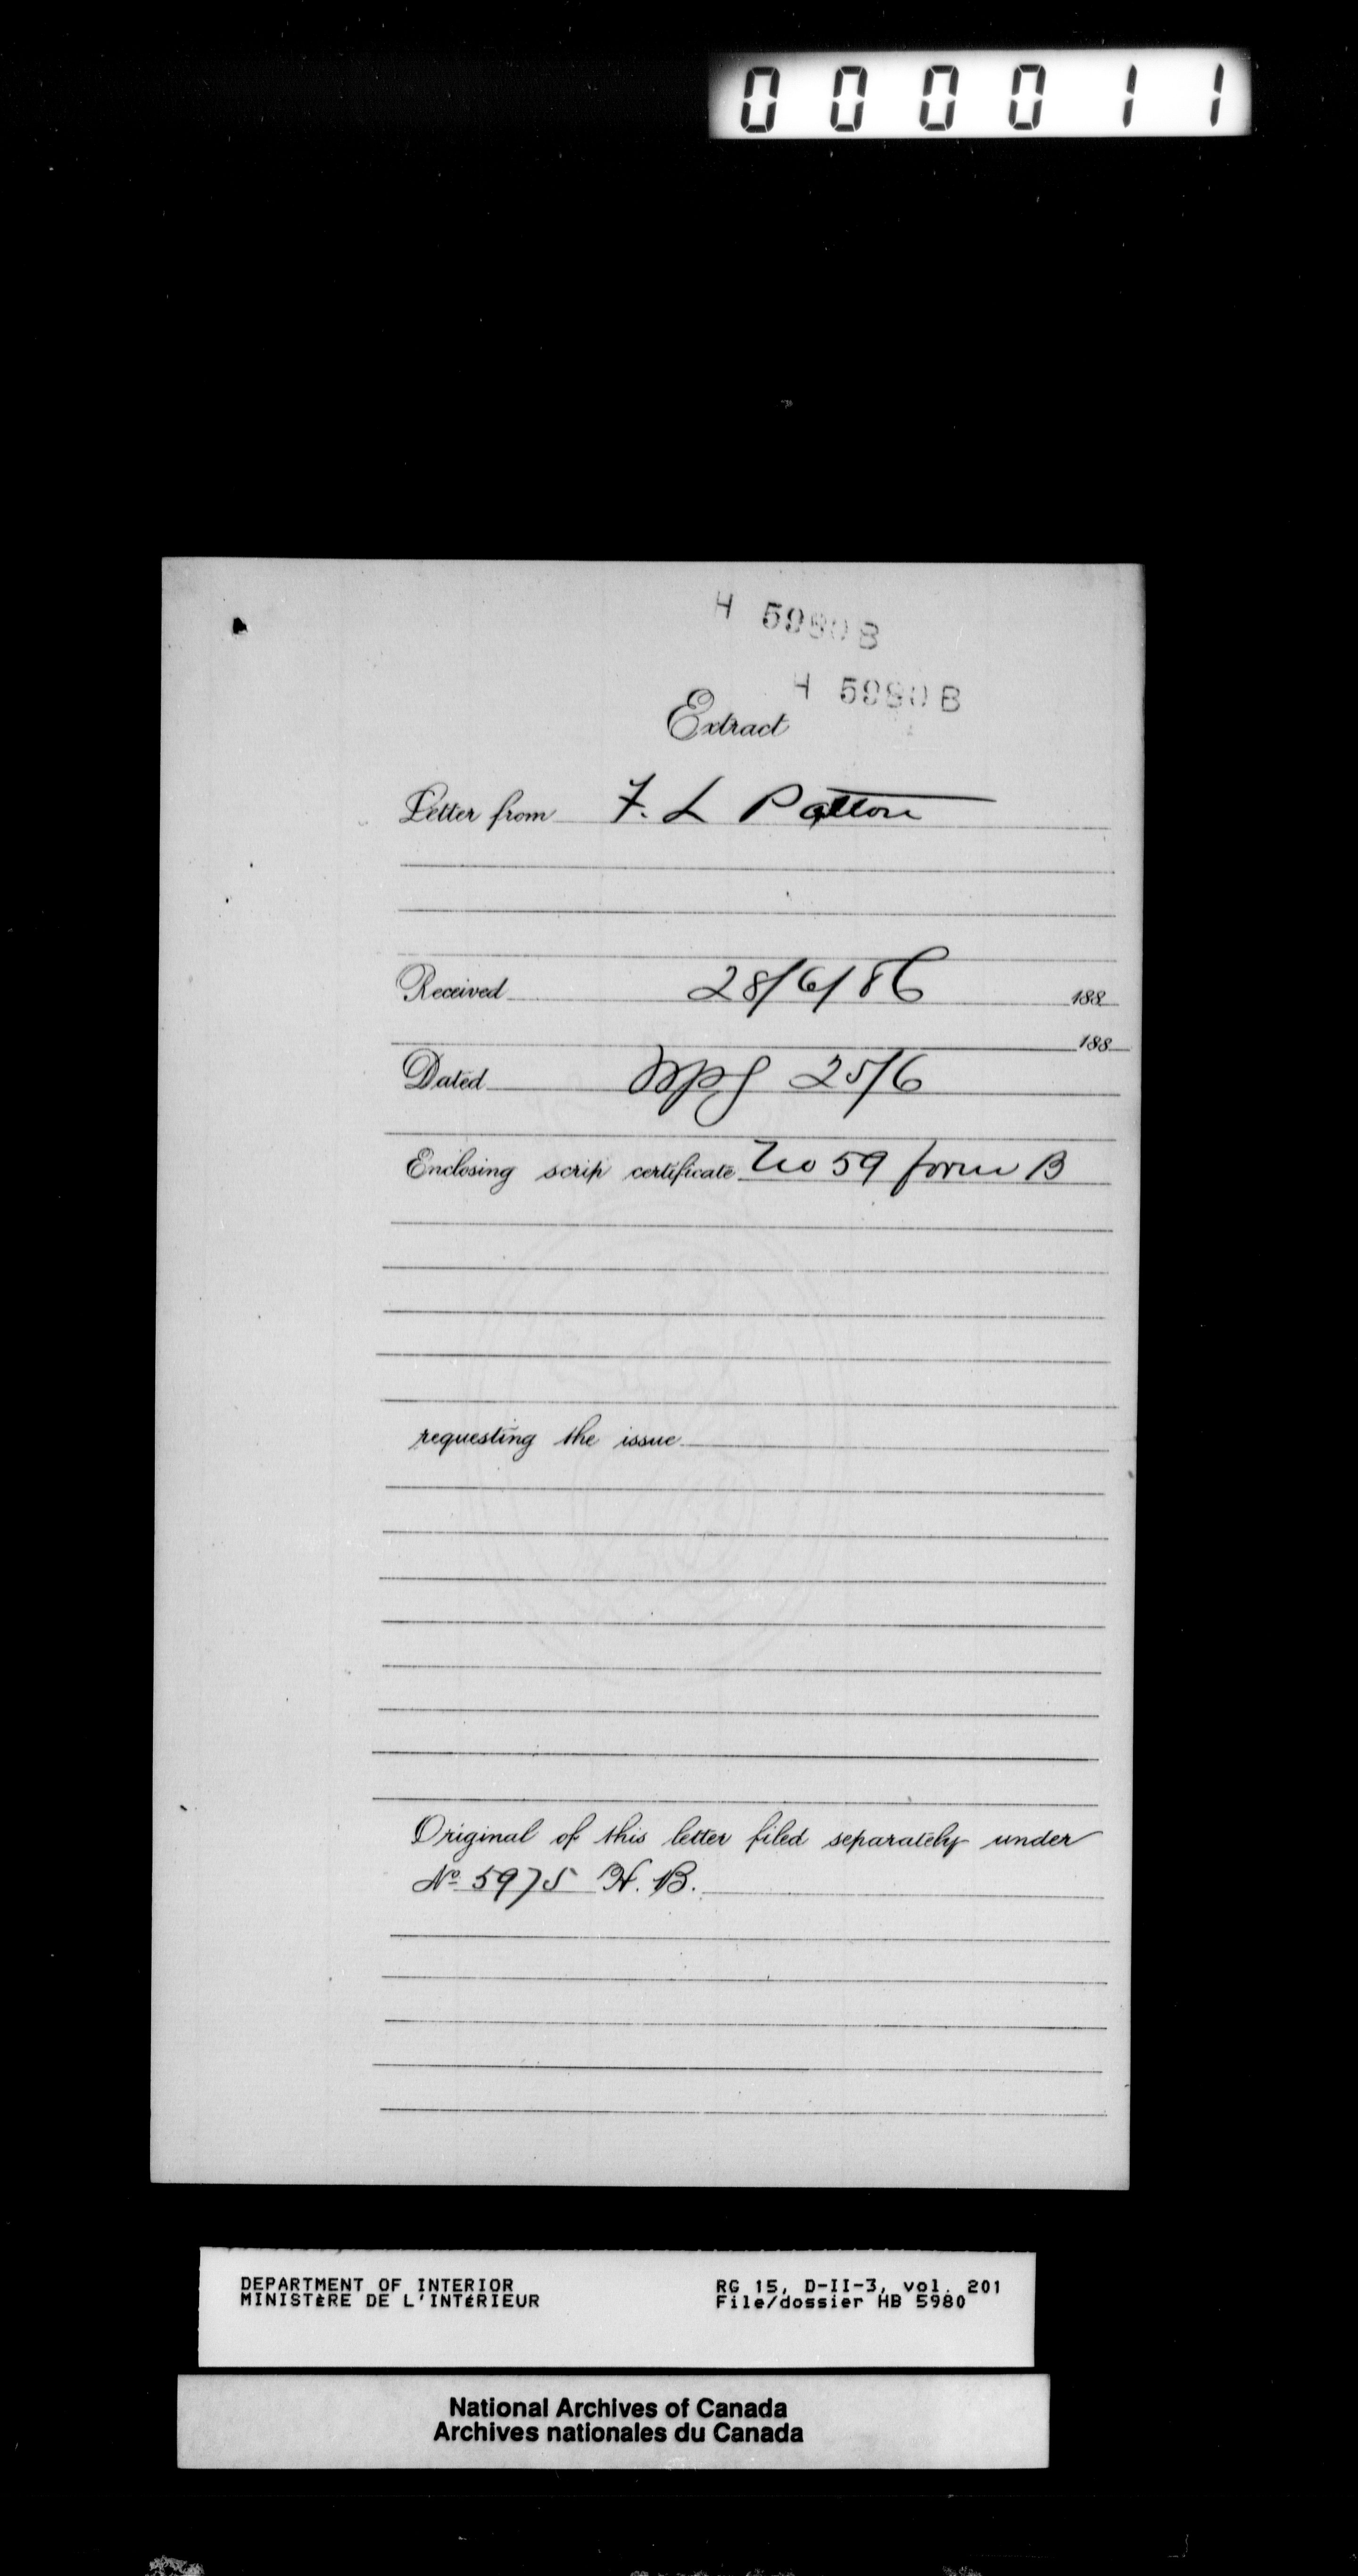 000011
H 5980 B
H 5980 B
Extract
Letter from F. L Patton
Received 28/6/86 188
188
Dated Wpg 25/6
Enclosing scrip certificate No 59 form B
requesting the issue
Original of this letter filed separately under
No. 5975 H. B.
DEPARTMENT OF INTERIOR
MINISTÈRE DE L'INTÉRIEUR
RG 15, D-II-3, vol. 201
File/dossier HB 5980
National Archives of Canada
Archives nationales du Canada